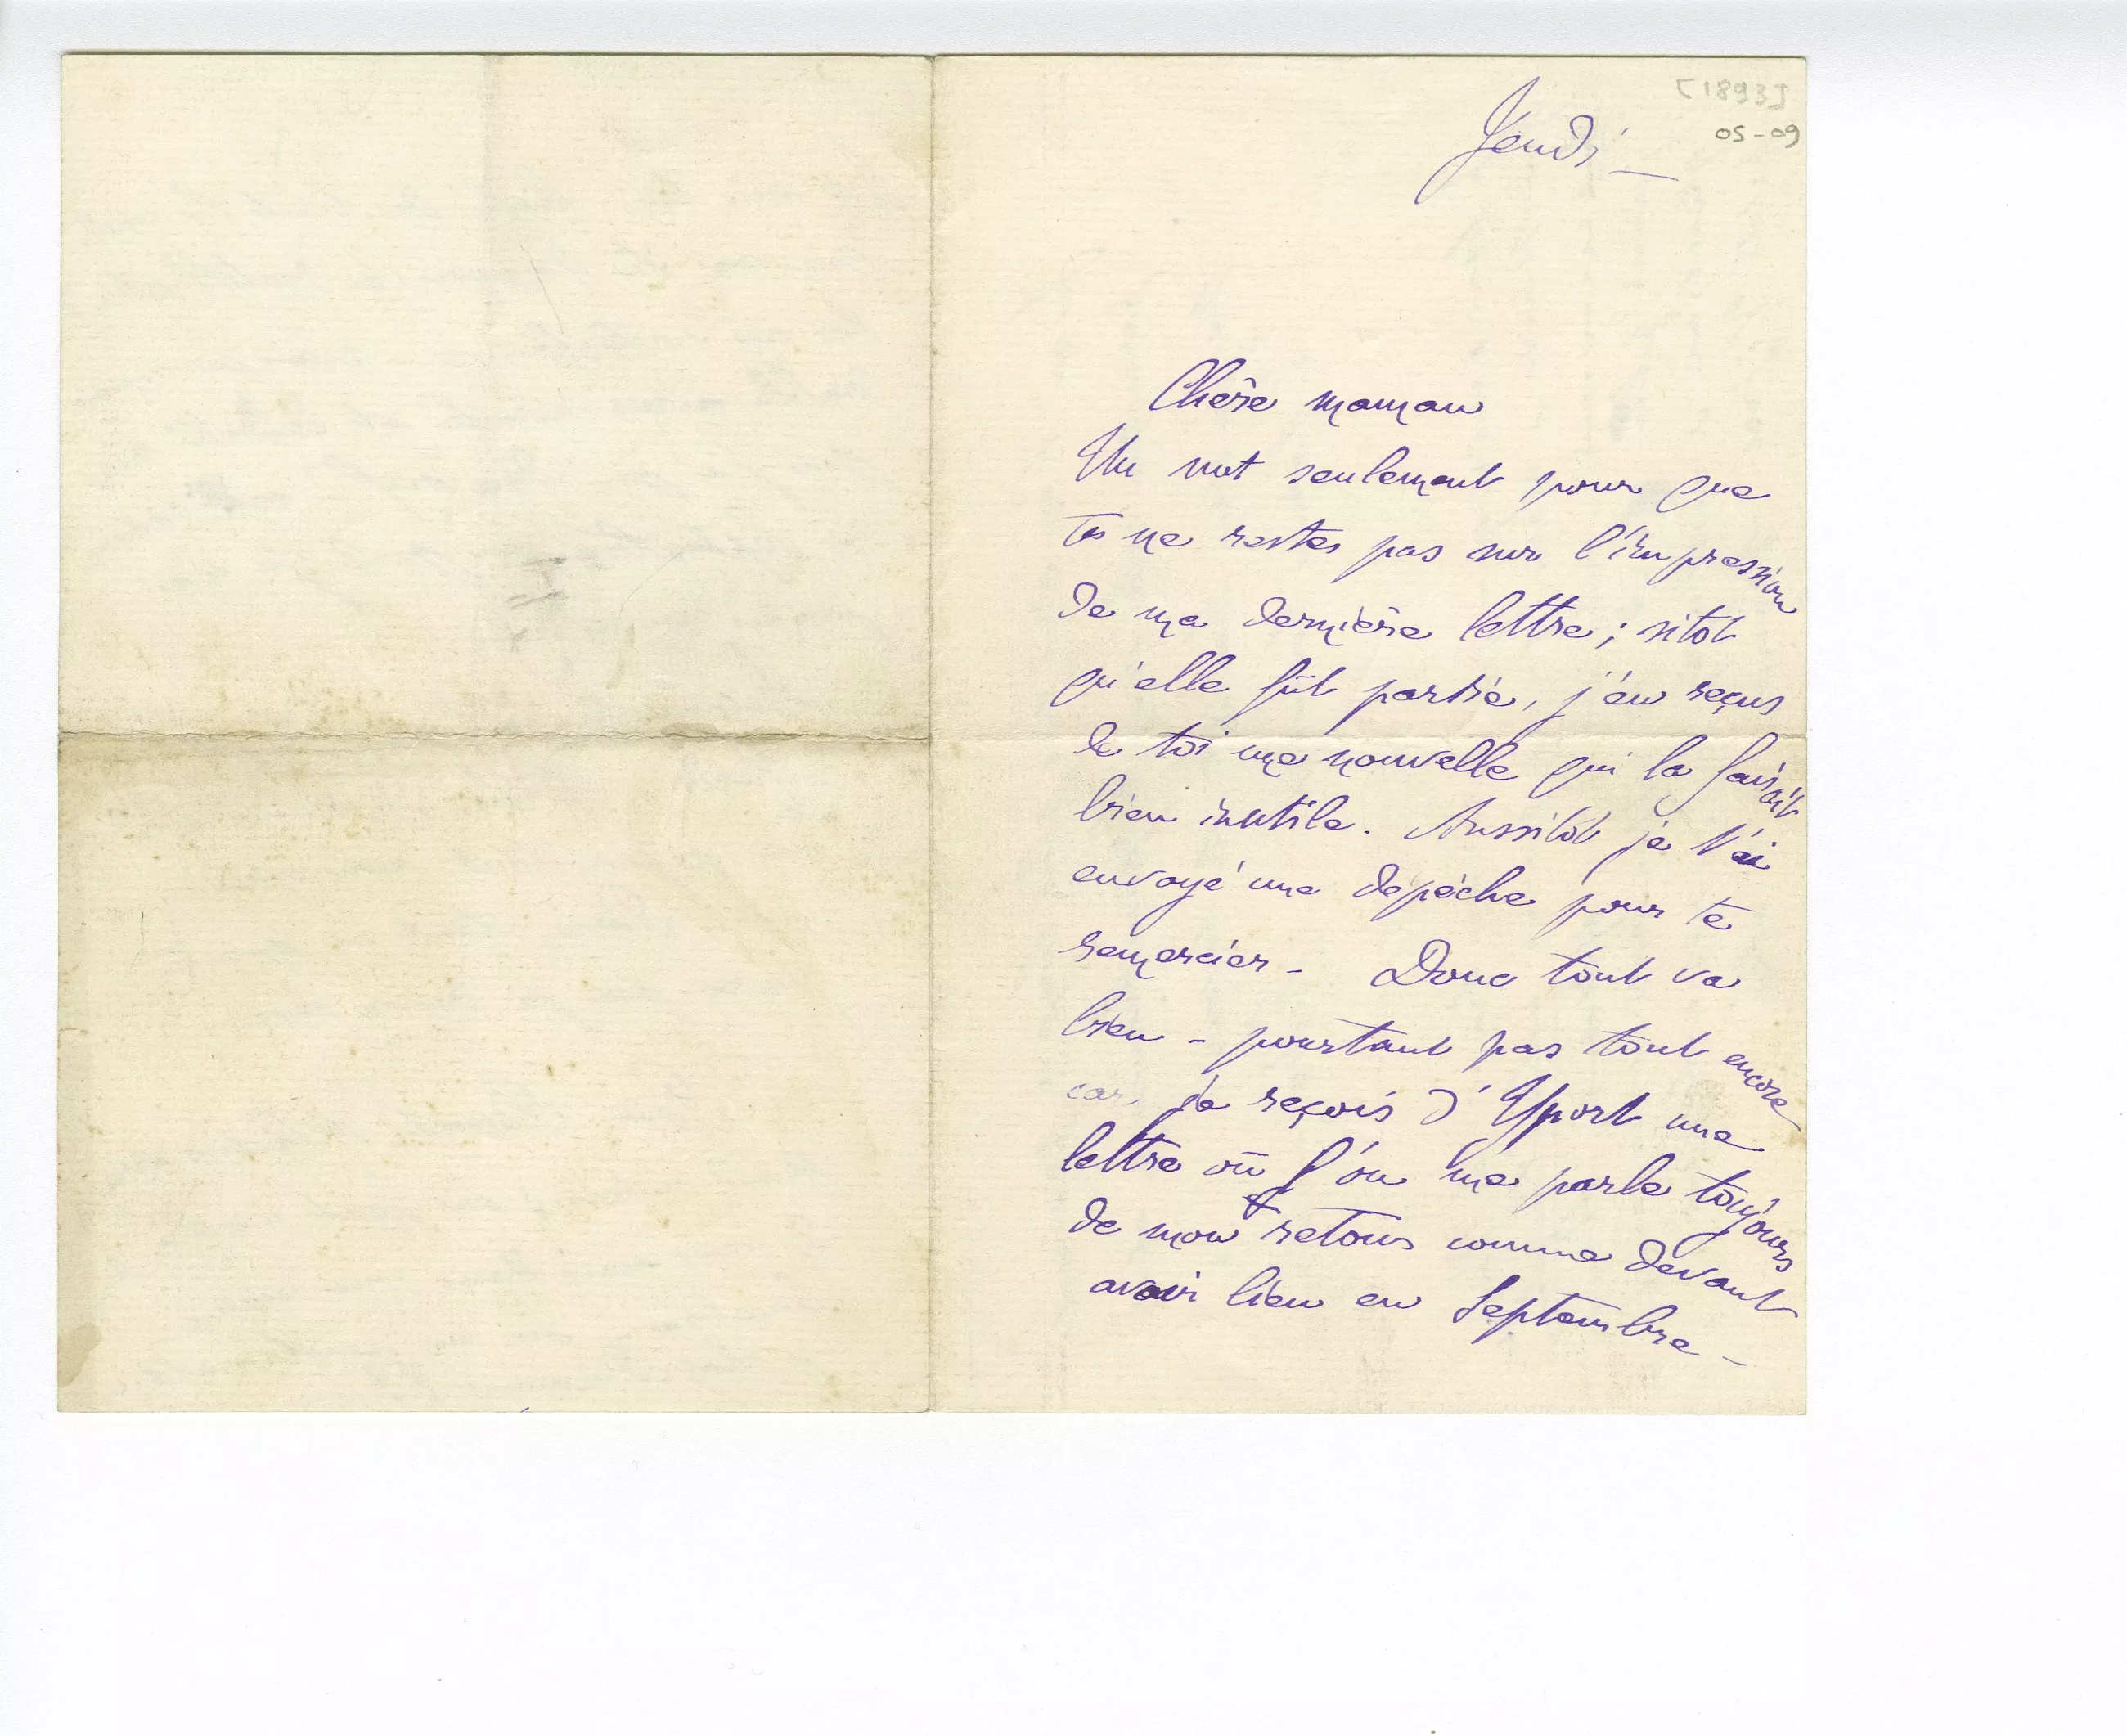 [1893]
05-09
Jeudi –
Chère maman
Un mot seulement pour que
tu ne restes pas sur l'impression
de ma dernière lettre ; sitot
qu'elle fût partie, j'en reçus
de toi une nouvelle qui la faisait
bien inutile. Aussitôt je t'ai
envoyé une dépêche pour te
remercier – Donc tout va
bien – pourtant pas tout encore
car, je reçois d'Yport une
lettre où l'on me parle toujours
de mon retour comme devant
avoir lieu en Septembre –